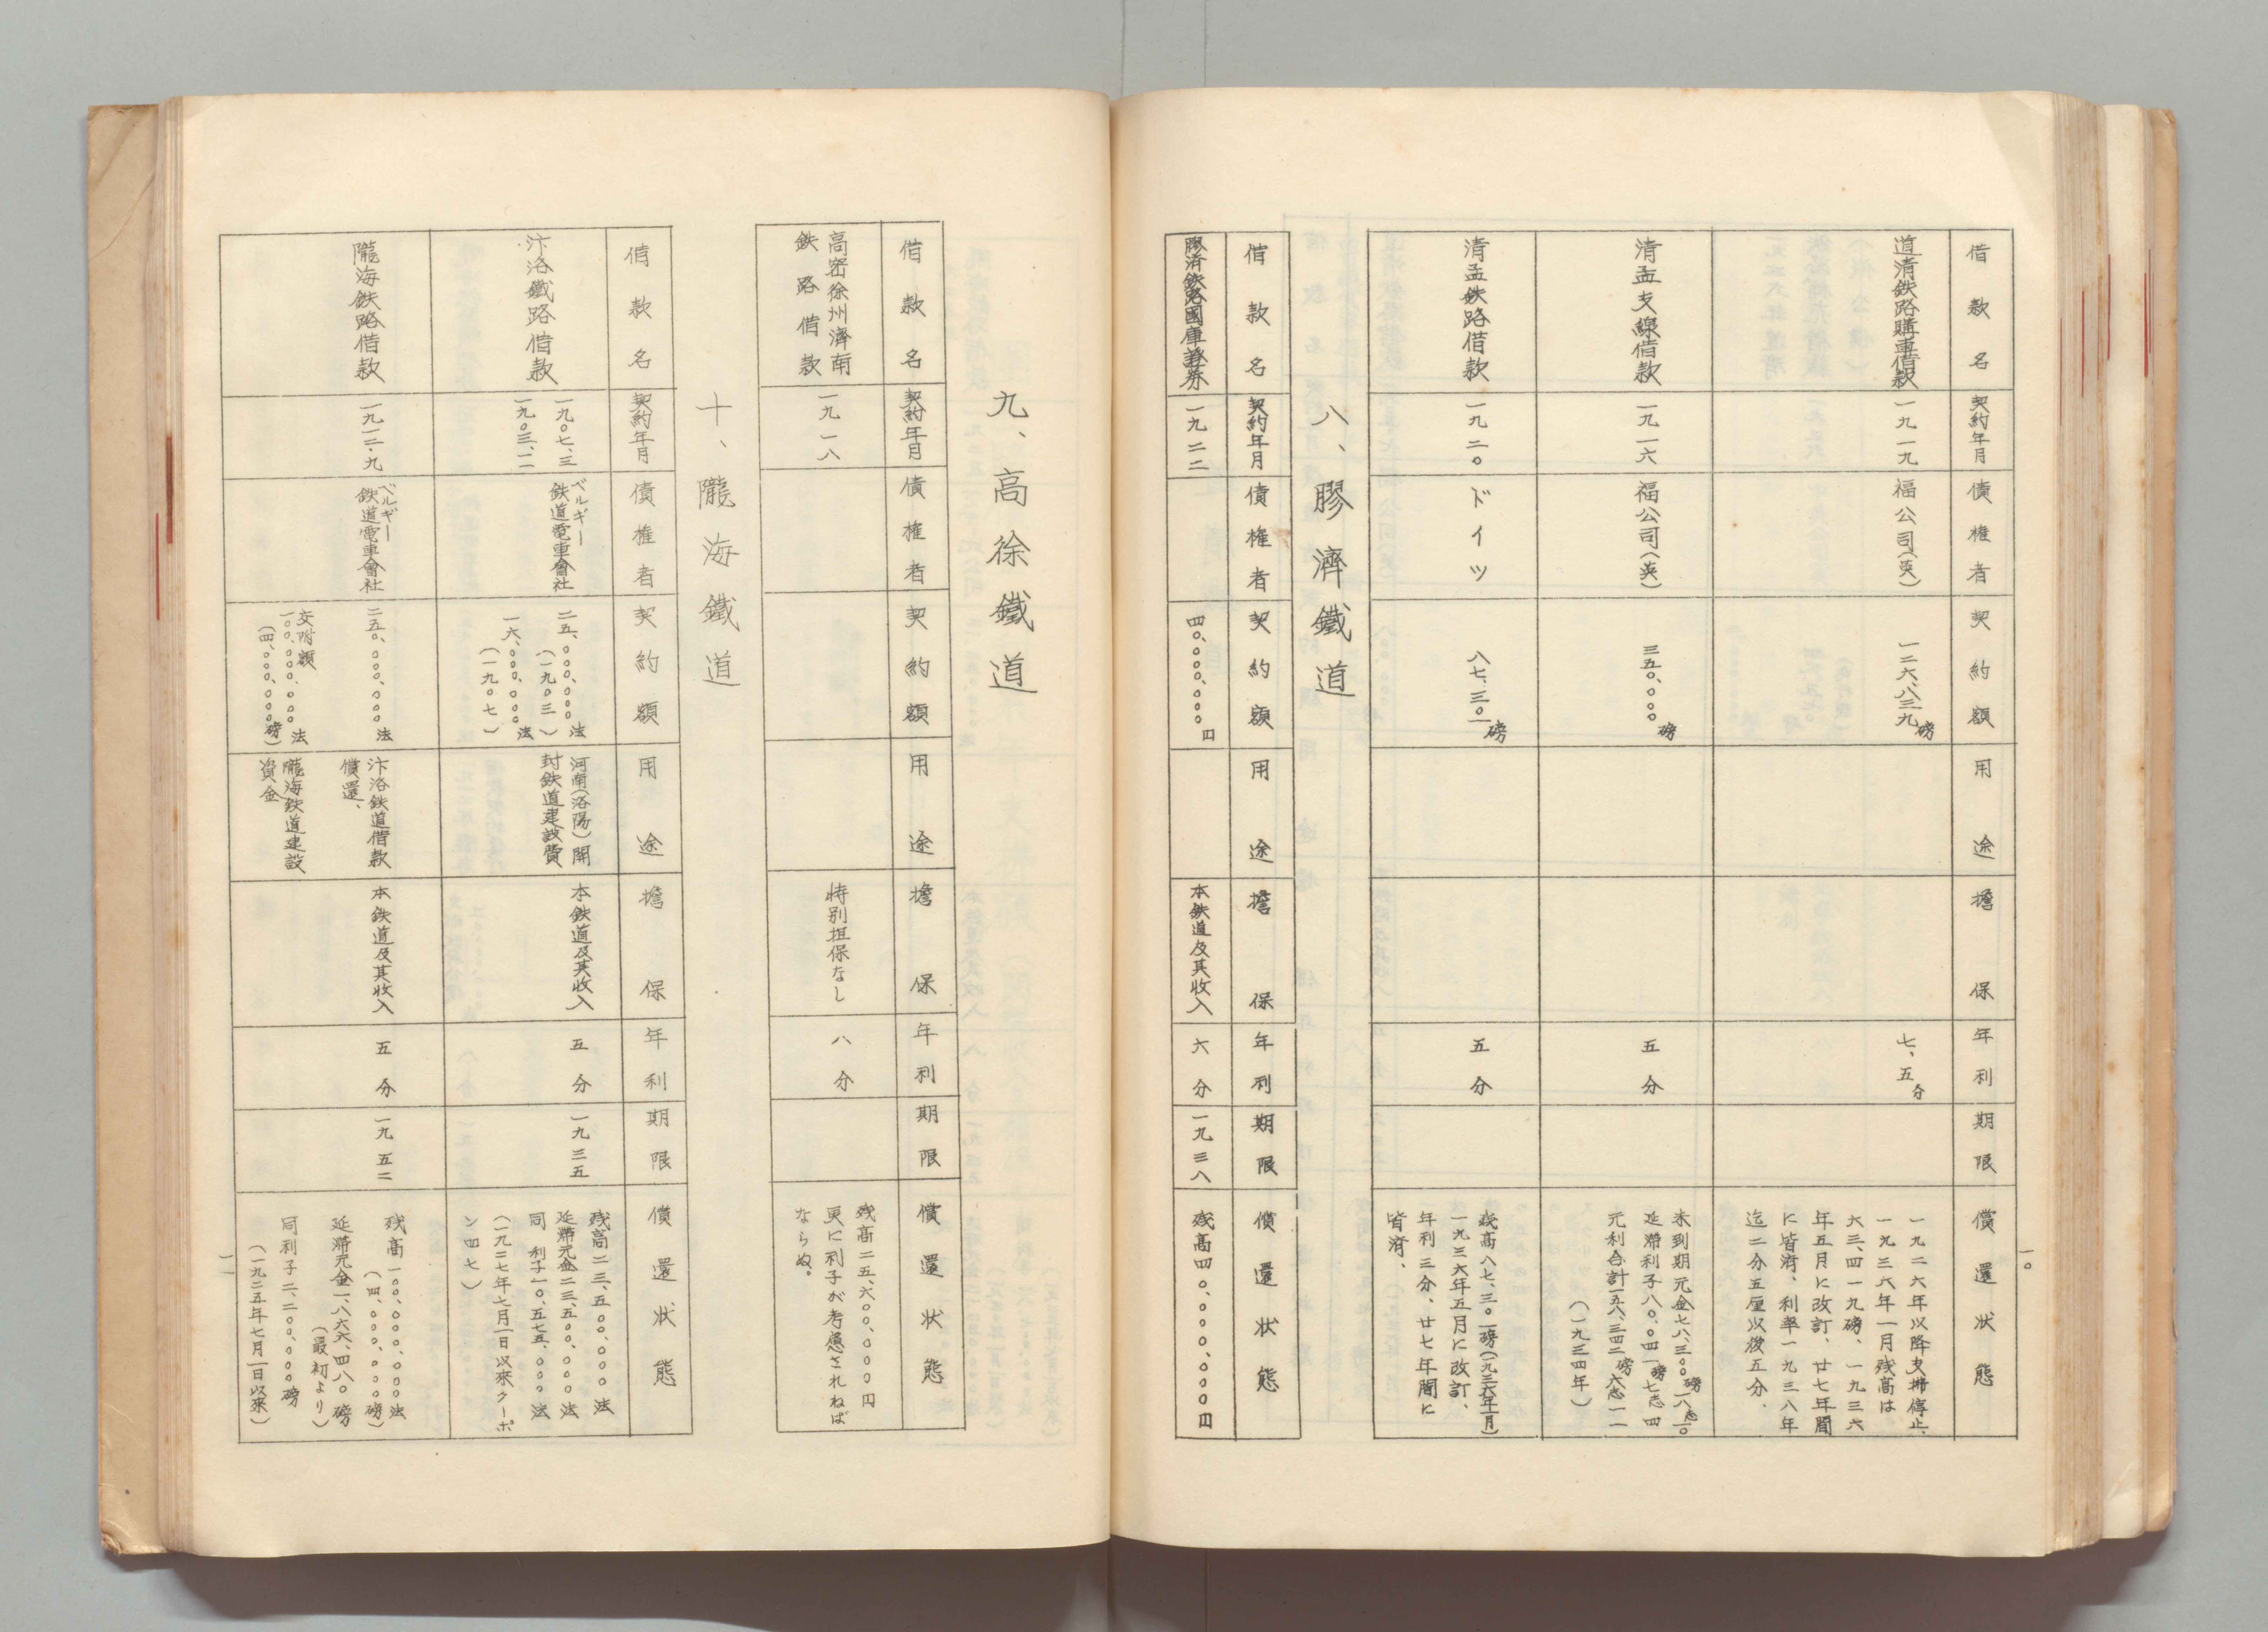 一〇
借款名
契約年月
債権者
契約額
用途
擔保
年利
期限
償還状態
道清鉄路購車借款
一九一九
福公司(英)
一二六、八三九磅
七、五分
一九二六年以降支拂停止、
一九三六年一月残高は
六三、四一九磅、一九三六
年五月に改訂、廿七年間
に皆済、利率一九三八年
迄二分五厘以後五分、
清孟支線借款
一九一六
福公司(英)
三五〇、〇〇〇磅
五分
未到期元金七八、三〇〇磅一八志一〇
延滞利子八〇、〇四一磅七志四
元利合計一五八、三四二磅六志一一
(一九三四年)
清孟鉄路借款
一九二〇
ドイツ
八七、三〇一磅
五分
残高八七、三〇一磅(一九三六年一月)
一九三六年五月に改訂、
年利三分、廿七年間に
皆済、
八、膠濟鐵道
借款名
契約年月
債権者
契約額
用途
擔保
年利
期限
償還状態
膠済鉄路國庫證券
一九二二
四〇、〇〇〇、〇〇〇円
本鉄道及其收入
六分
一九三八
残高四〇、〇〇〇、〇〇〇円
九、高徐鐵道
借款名
契約年月
債権者
契約額
用途
擔保
年利
期限
償還状態
高密徐州濟南
鉄路借款
一九一八
特別担保なし
八分
残高二五、六〇〇、〇〇〇円
更に利子が考慮されねば
ならぬ。
十、隴海鐵道
借款名
契約年月
債権者
契約額
用途
擔保
年利
期限
償還状態
汴洛鐵路借款
一九〇七、三
一九〇三、一一
ベルギー
鉄道電車會社
二五、〇〇〇、〇〇〇法
(一九〇三)
一六、〇〇〇、〇〇〇法
(一九〇七)
河南(洛陽)開
封鉄道建設費
本鉄道及其收入
五分
一九三五
残高二三、五〇〇、〇〇〇法
延滞元金二三、五〇〇、〇〇〇法
同利子一〇、五七五、〇〇〇法
(一九二七年七月一日以來クーポ
ン四七)
隴海鉄路借款
一九一二・九
ベルギー
鉄道電車會社
二五〇、〇〇〇、〇〇〇法
交附額
一〇〇、〇〇〇、〇〇〇法
(四、〇〇〇、〇〇〇磅)
汴洛鉄道借款
償還、
隴海鉄道建設
資金
本鉄道及其收入
五分
一九五二
残高一〇〇、〇〇〇、〇〇〇法
(四、〇〇〇、〇〇〇磅)
延滞元金一、八六六、四八〇磅
(最初より)
同利子二、二〇〇、〇〇〇磅
(一九二五年七月一日以來)
一一